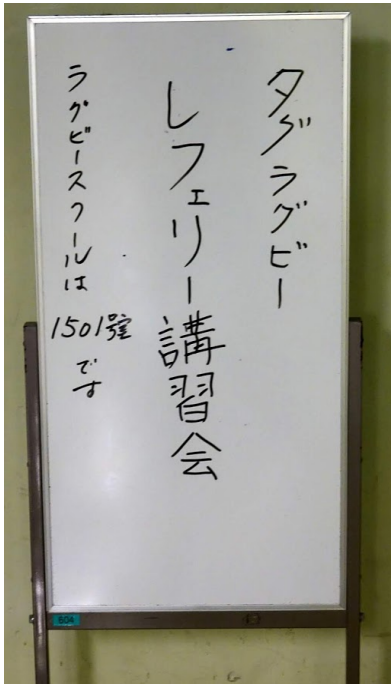 タグラグビー
レフェリー講習会
ラグビースクールは
1501号室
です
604